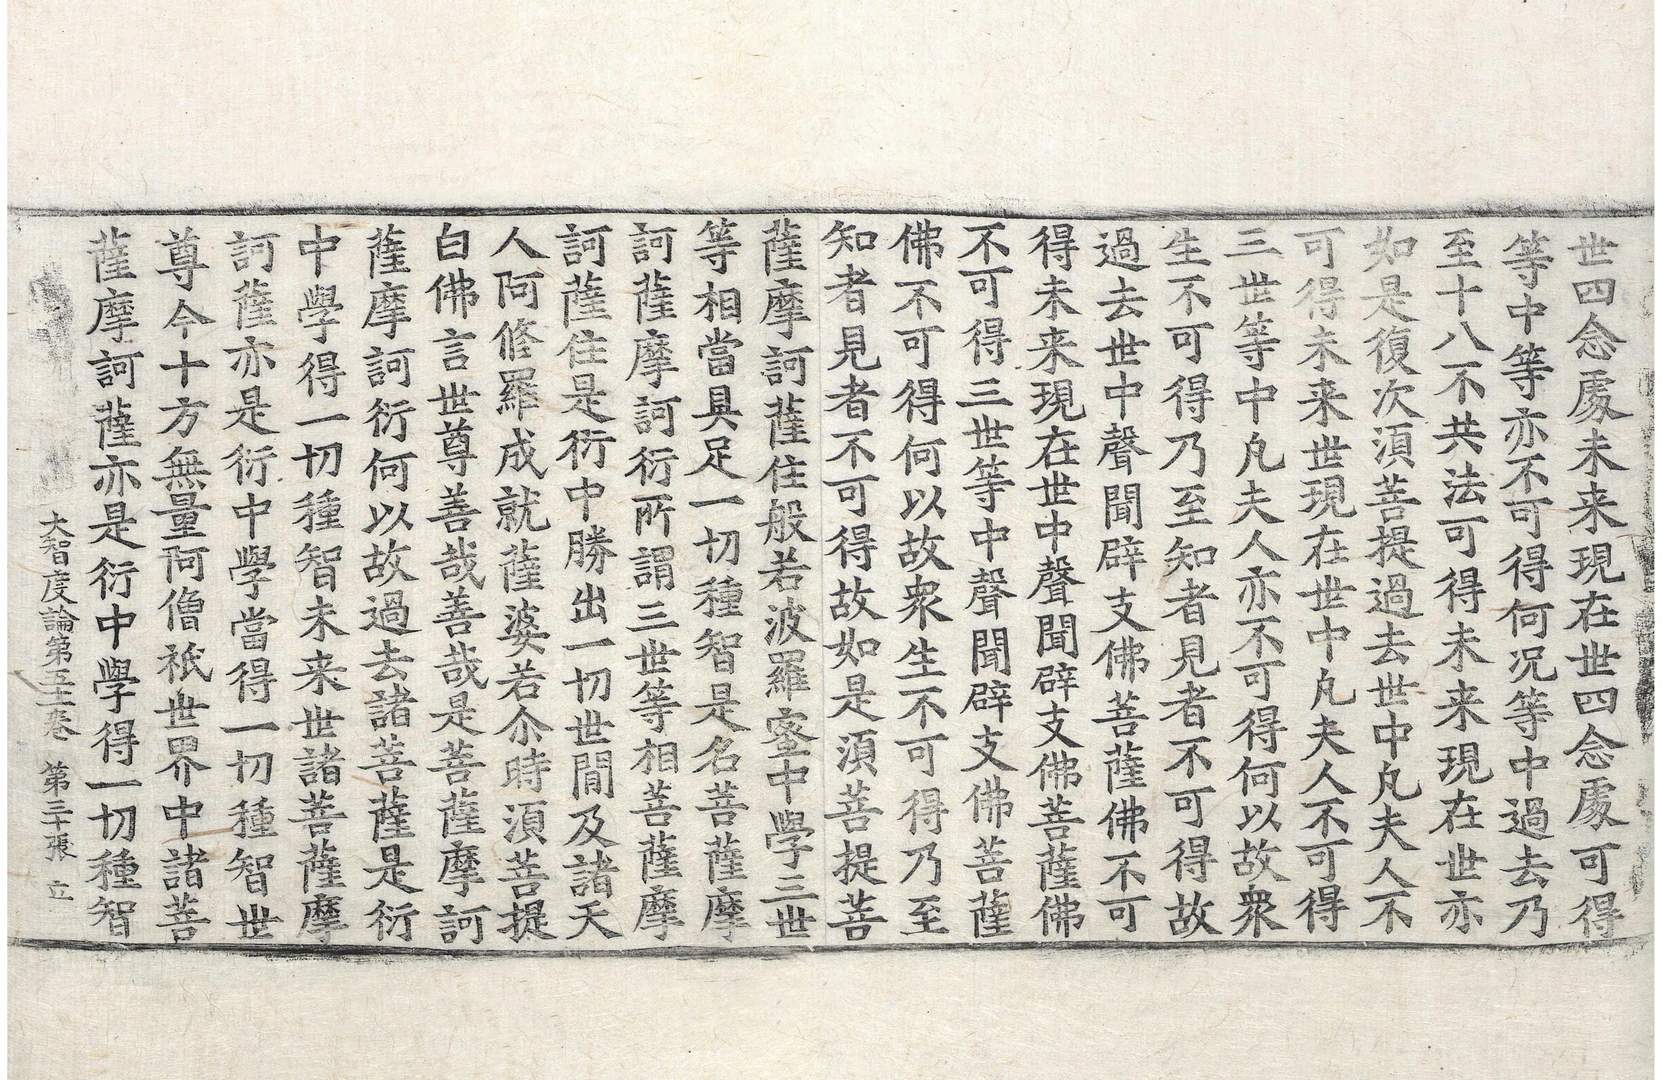 世四念處未来現在世四念處可得
等中等亦不可得何况等中過去乃
至十八不共法可得未来現在世亦
如是復次湏菩提過去世中凡夫人不
可得未来世現在世中凡夫人不可得
三世等中凡夫人亦不可得何以故衆
生不可得乃至知者見者不可得故
過去世中聲聞辟支佛菩薩佛不可
得未来現在世中聲聞辟支佛菩薩佛
不可得三世等中聲聞辟支佛菩薩
佛不可得何以故衆生不可得乃至
知者見者不可得故如是湏菩提菩
薩摩訶薩住般若波羅蜜中學三世
等相當具足一切種智是名菩薩摩
訶薩摩訶衍所謂三世等相菩薩摩
訶薩住是衍中勝出一切世閒及諸天
人阿修羅成就薩婆若尒時湏菩提
白佛言世尊善哉善哉是菩薩摩訶
薩摩訶衍何以故過去諸菩薩是衍
中學得一切種智未来世諸菩薩摩
訶薩亦是衍中學當得一切種智世
尊今十方無量阿僧祇世界中諸菩
薩摩訶薩亦是衍中學得一切種智
大智度論第五十一卷 第三十張 立